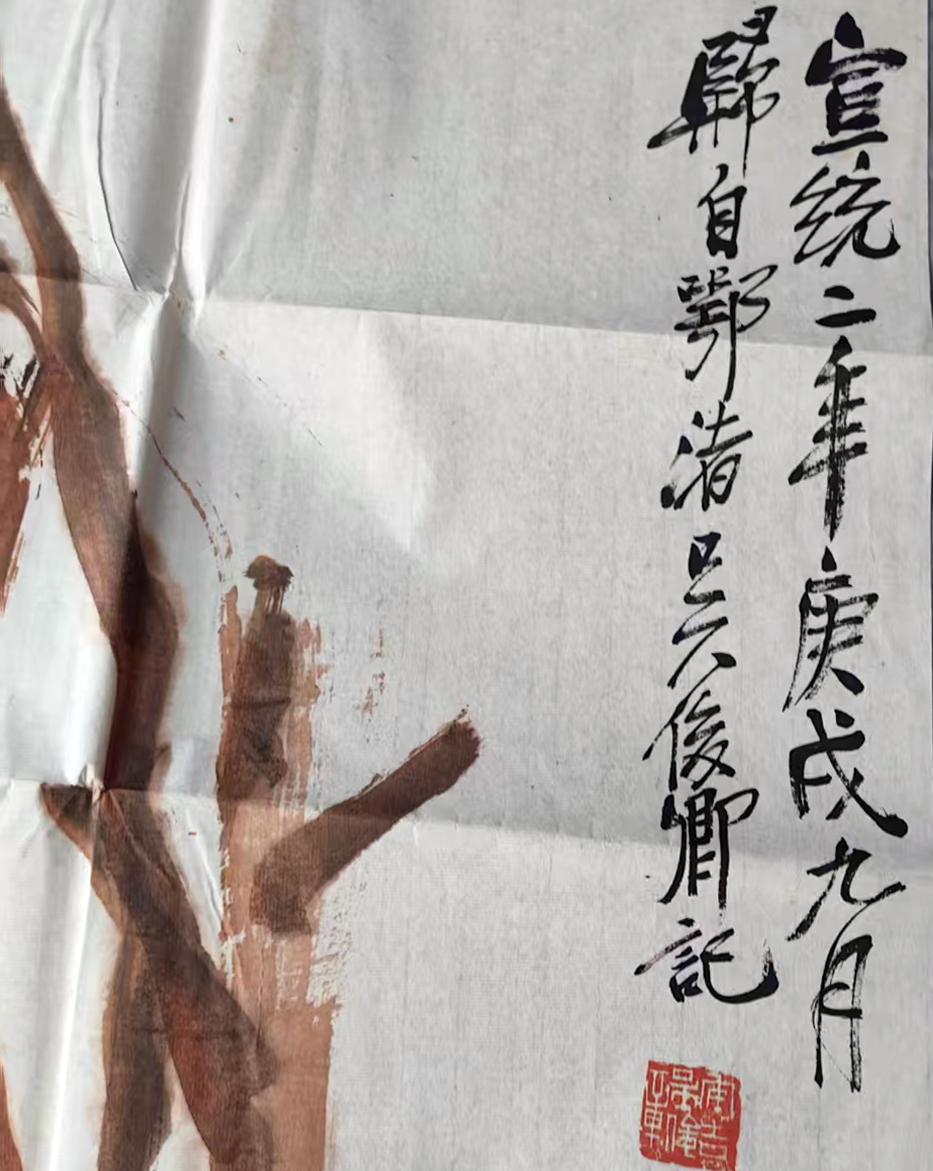 宣統二年庚戌九月
歸自鄂渚吳俊卿記